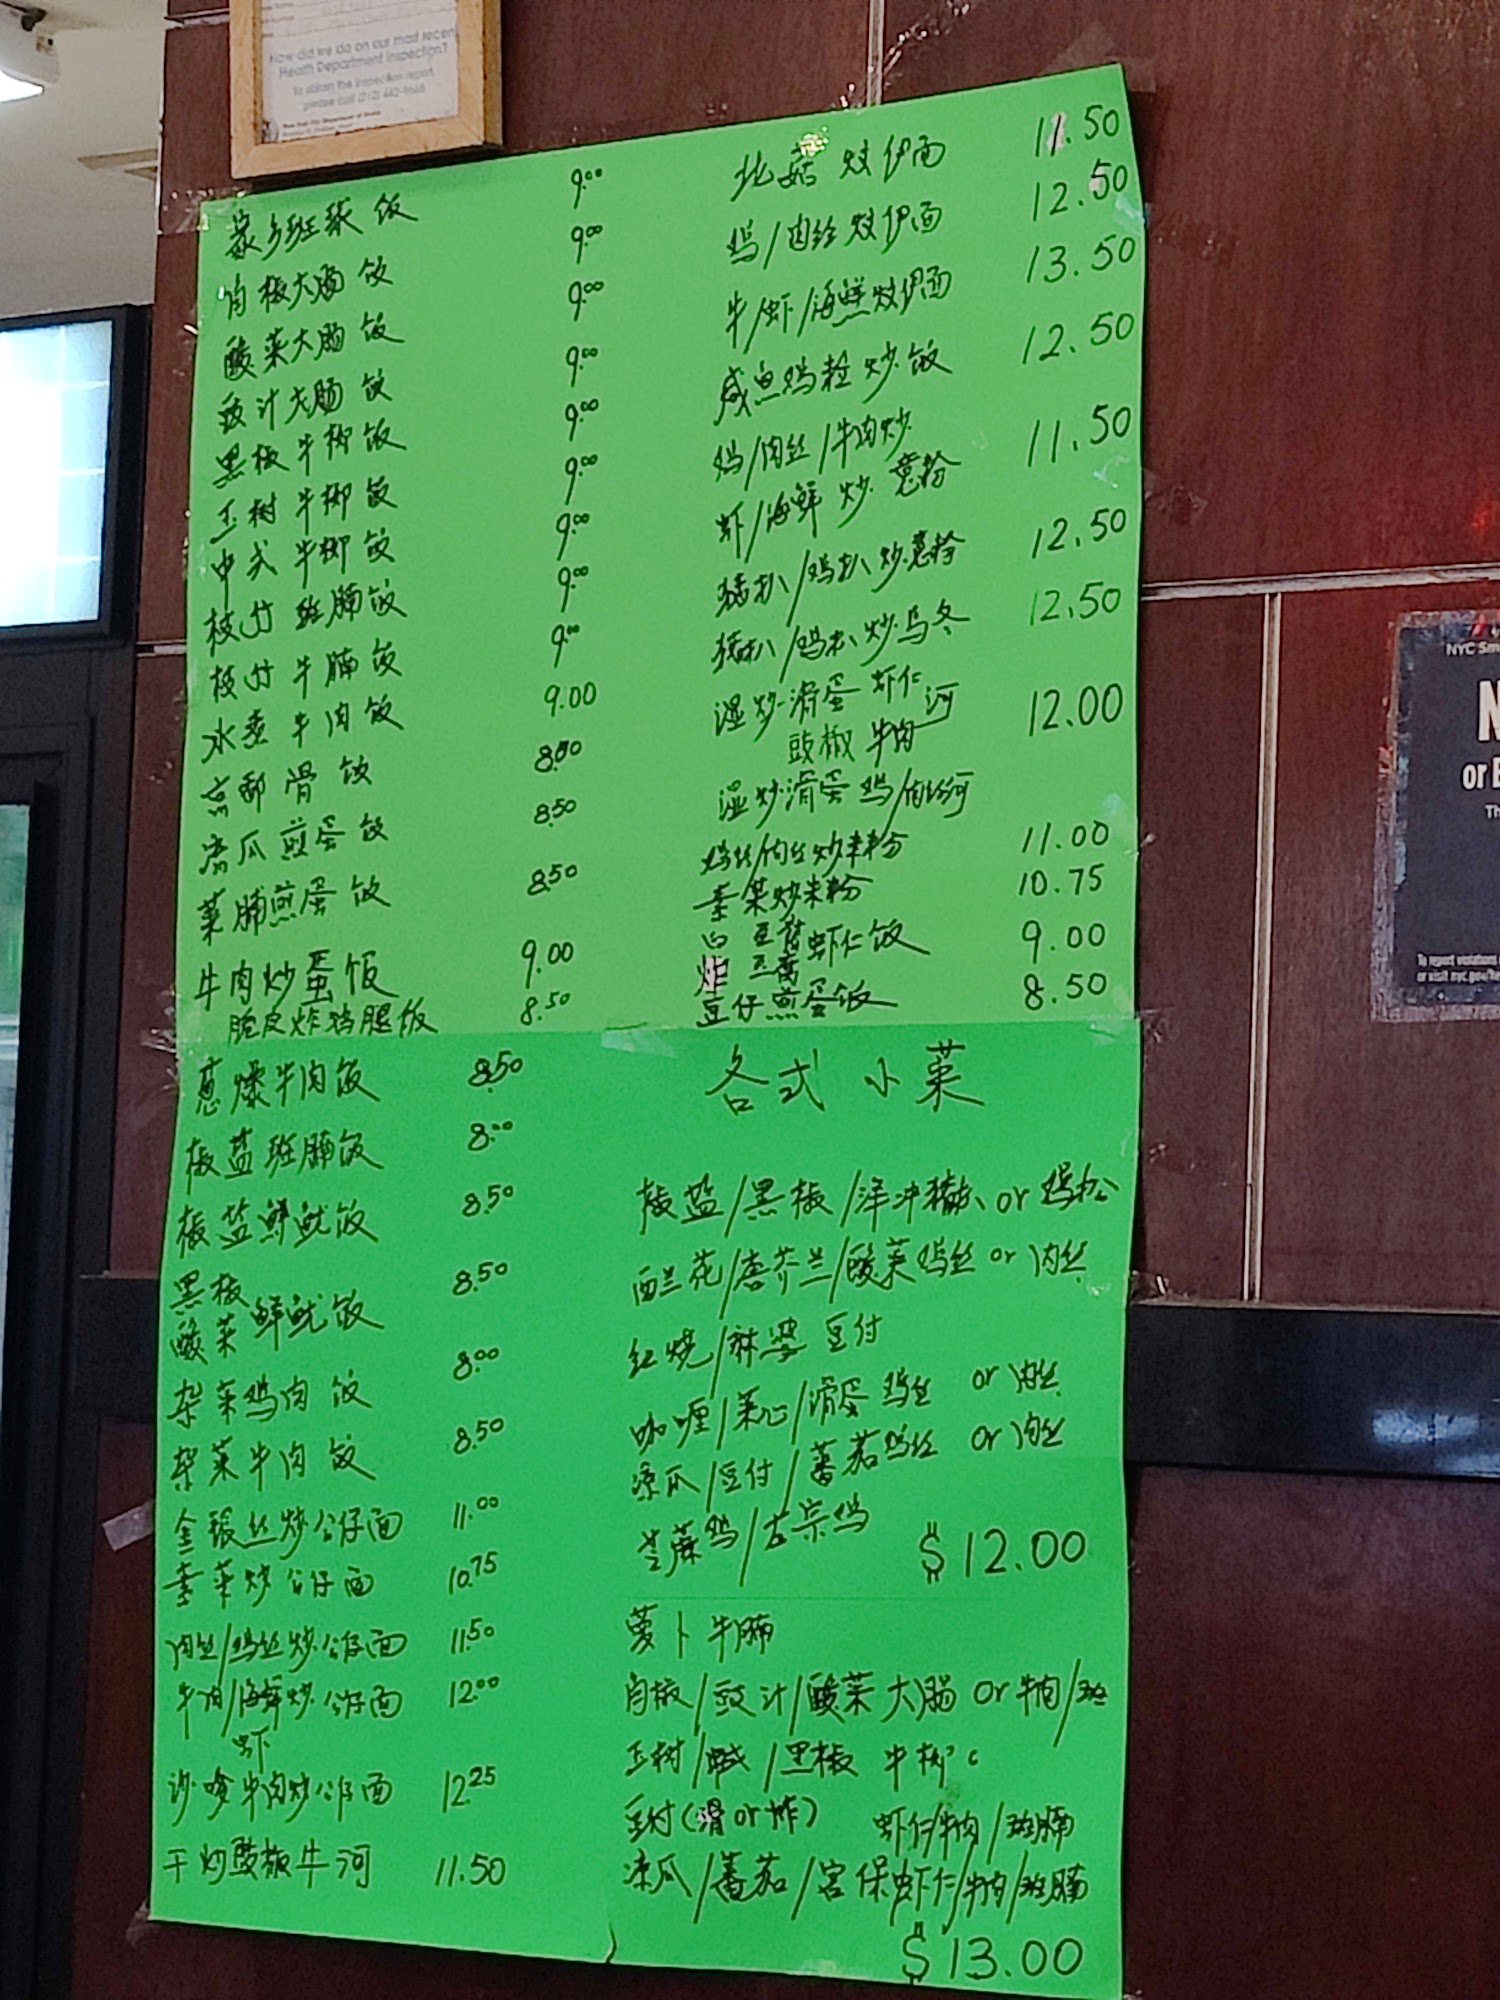 How did we do on our most recent
Health Department inspection?
To obtain the inspection report,
please call (212) 442-9666
New York City Department of Health
班球饭 9.00
肉椒大肠饭 9.00
酸菜大肠饭 9.00
豉汁大肠饭 9.00
黑椒牛柳饭 9.00
玉树牛柳饭 9.00
中式牛柳饭 9.00
枝竹班腩饭 9.00
枝竹牛腩饭 9.00
水煮牛肉饭 9.00
京都骨饭 8.50
凉瓜煎蛋饭 8.50
菜脯煎蛋饭 8.50
牛肉炒蛋饭 9.00
脆皮炸鸡腿饭 8.50
葱爆牛肉饭 8.50
椒盐班腩饭 8.00
椒盐鲜鱿饭 8.50
黑椒
酸菜鲜鱿饭 8.50
杂菜鸡肉饭 8.00
杂菜牛肉饭 8.50
金银丝炒公仔面 11.00
素菜炒公仔面 10.75
肉丝/鸡丝炒公仔面 11.50
牛肉/海鲜炒公仔面 12.00
虾
沙嗲牛肉炒公仔面 12.25
干炒豉椒牛河 11.50
北菇炆伊面 11.50
鸡/肉丝炆伊面 12.50
牛/虾/海鲜炆伊面 13.50
咸鱼鸡粒炒饭 12.50
鸡/肉丝/牛肉炒
虾/海鲜炒意粉 11.50
猪扒/鸡扒炒意粉 12.50
猪扒/鸡扒炒乌冬 12.50
湿炒滑蛋虾仁河
豉椒牛肉 12.00
湿炒滑蛋鸡/肉丝河
鸡丝/肉丝炒米粉 11.00
素菜炒米粉 10.75
白豆腐
炸豆腐虾仁饭 9.00
豆仔煎蛋饭 8.50
各式小菜
椒盐/黑椒/洋冲猪扒 or 鸡扒
西兰花/唐芥兰/酸菜鸡丝 or 肉丝
红烧/麻婆豆付
咖喱/菜心/滑蛋鸡丝 or 肉丝
凉瓜/豆付/蕃茄鸡丝 or 肉丝
芝麻鸡/左宗鸡 $12.00
萝卜牛腩
肉椒/豉汁/酸菜大肠 or 牛肉/班
玉树/咸/黑椒牛柳
豆付(滑 or 炸) 虾仁/牛肉/班腩
凉瓜/蕃茄/宫保虾仁/牛肉/班腩
$13.00
NYC Sm
N
or E
Th
To report violations
or visit nyc.gov/he